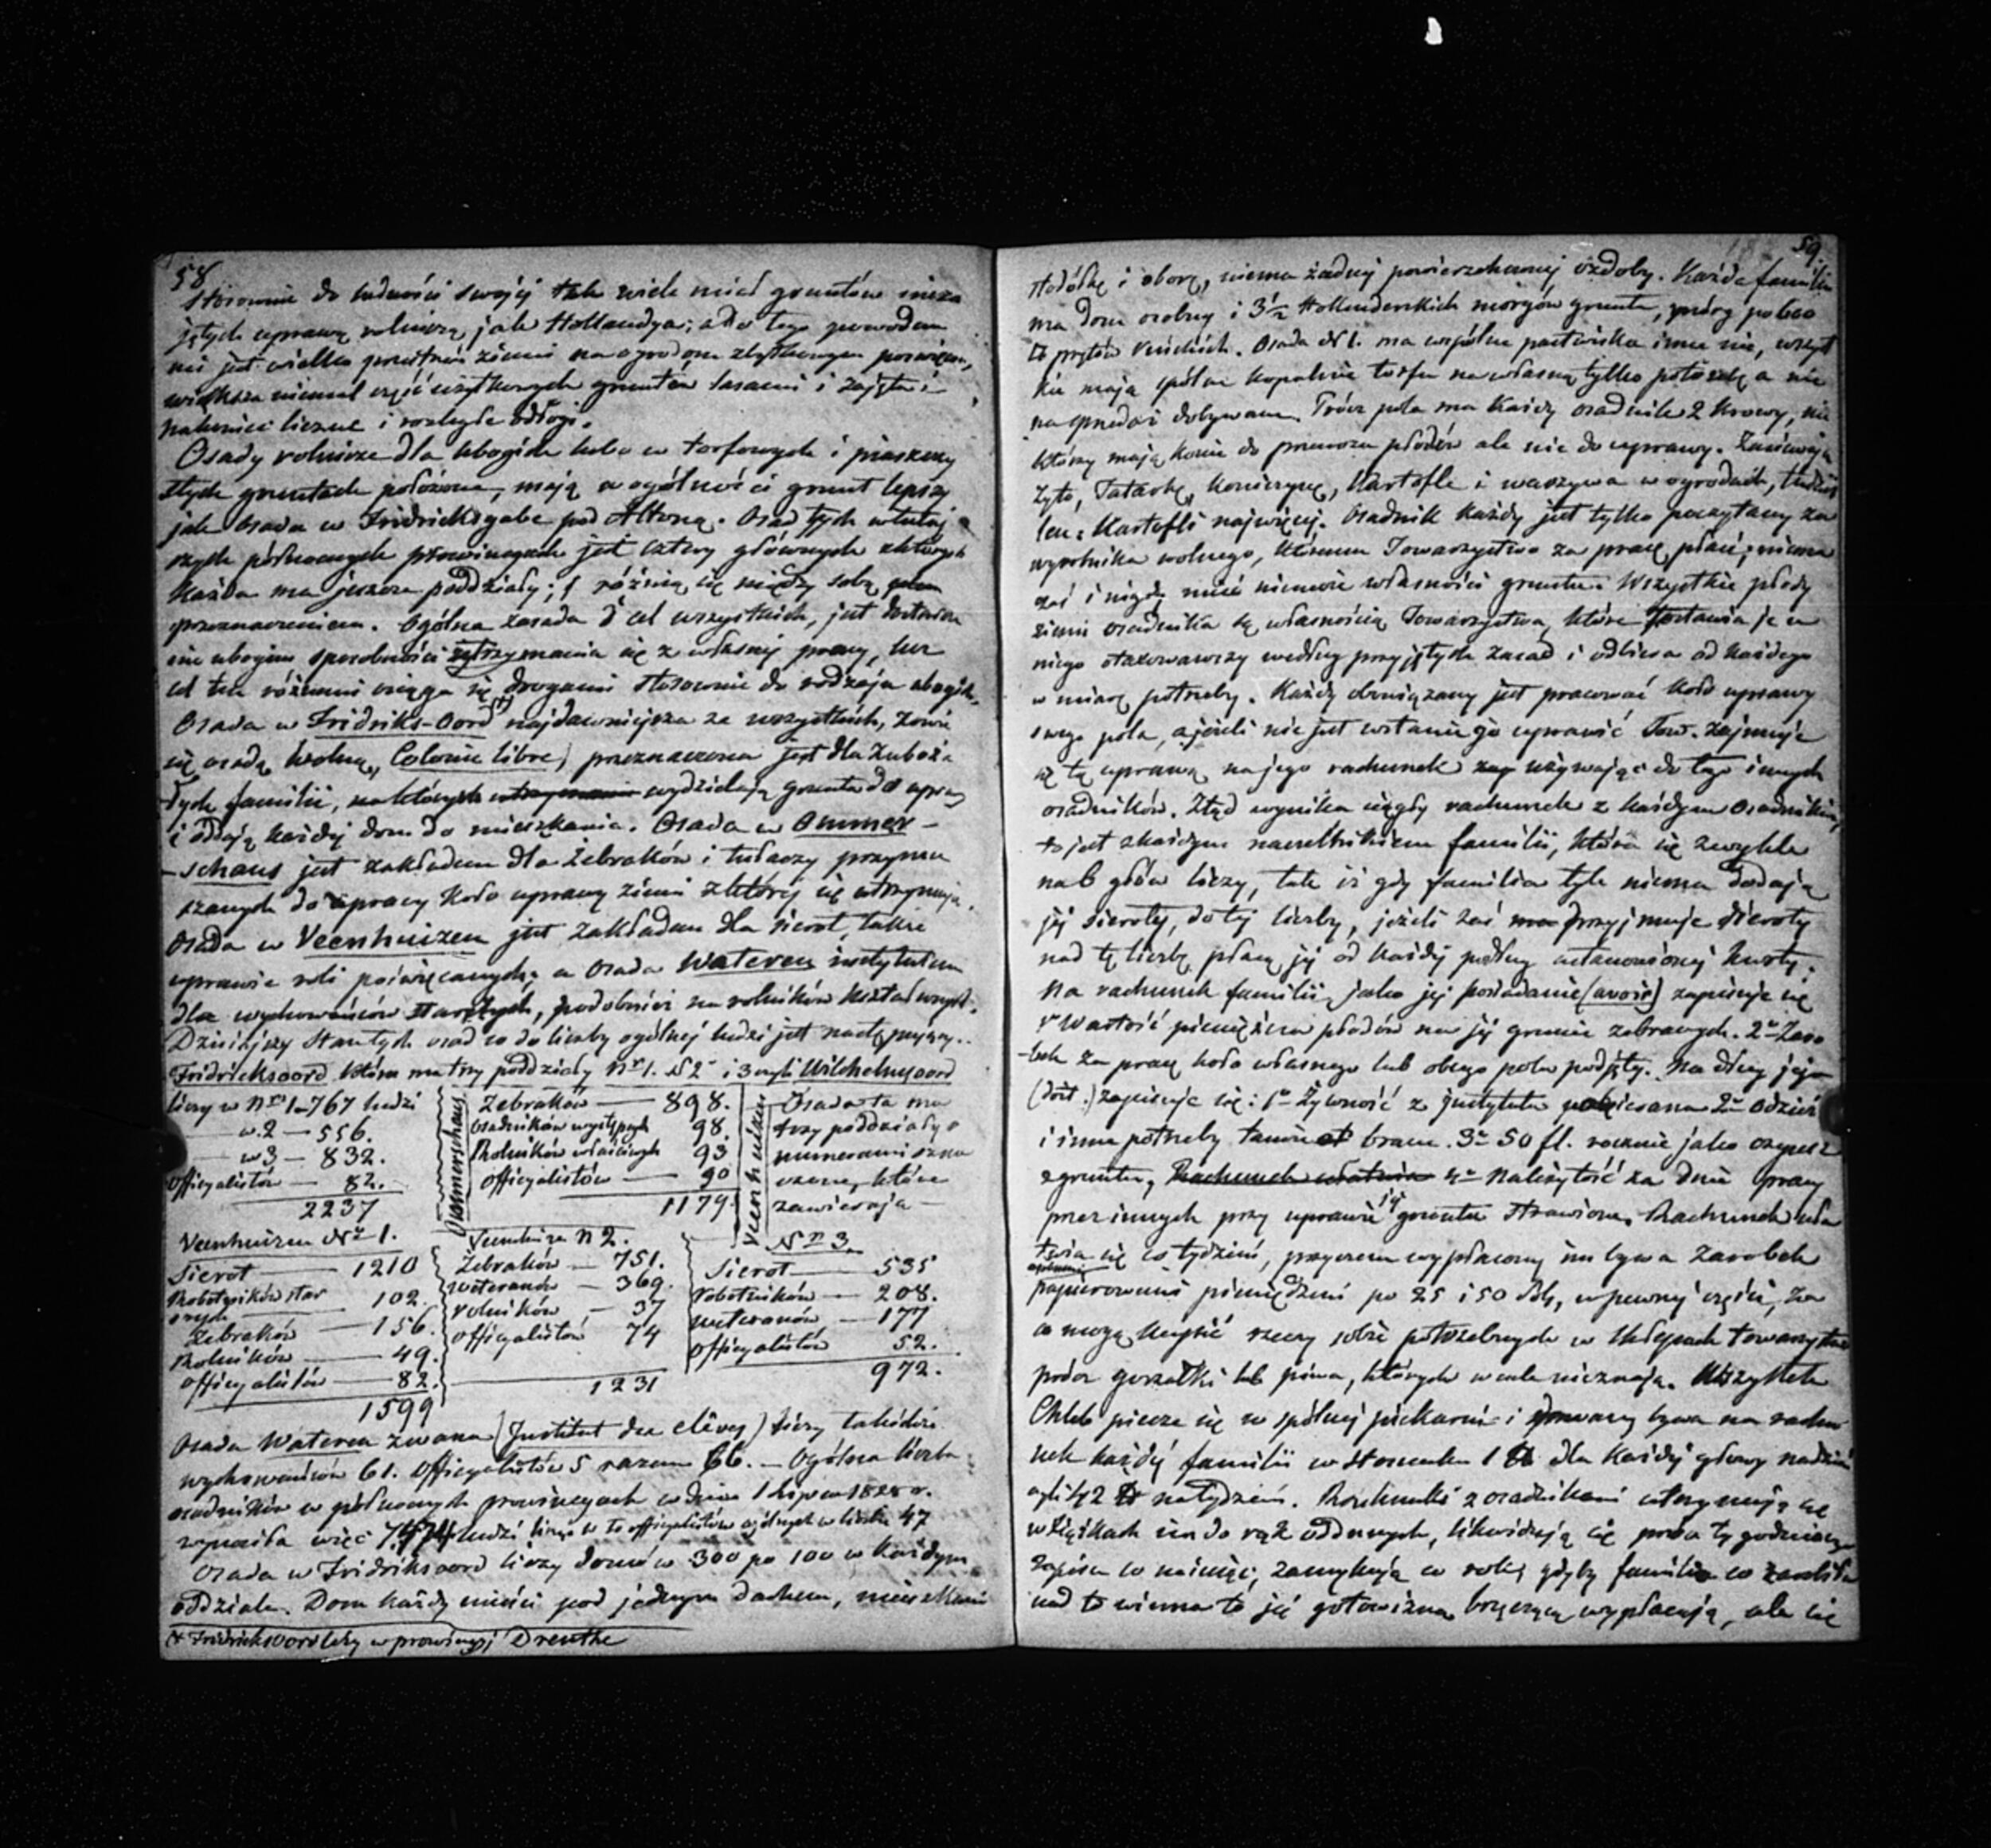 58
stosownie do ludności swojej tak wiele mieć gruntów nieza
jętych uprawą rolniczą jak Hollandya; a do tego powodem
nie jest wielka przestrzeń ziemi na ogrodom zbytkowym poświęcona,
większa niemal część użytkowych gruntów lasami i zajęta i
nakoniec liczne i rozległe odłogi.
Osady rolnicze dla ubogich lubo w torfowych i piaszczy
stych gruntach położone, mają w ogólności grunt lepszy
jak osada w Fridricksgabe pod Altoną. Osad tych w tutej
szych północnych prowincyach jest cztery głównych z których
każda ma jeszcze poddziały; i różnią się między sobą
przeznaczeniem. Ogólna zasada i cel wszystkich, jest dostarcze
nie ubogim sposobności utrzymania się z własnej pracy, lecz
cel ten różnemi osiąga się drogami stosownie do rodzaju ubogich.
Osada w Fridriks-Oord najdawniejsza ze wszystkich, zowie
się osadą wolną, (Colonie libre) przeznaczona jest dla zuboża
łych familii, na których utrzymanie wydzielają grunta do uprawy
i oddają każdej dom do mieszkania. Osada w Ommer-
-schans jest zakładem dla żebraków i tułaczy przymu
szanych do pracy koło uprawy ziemi z której się utrzymują.
Osada w Veenhuizen jest zakładem dla sierot, także
uprawie roli poświęcanych, a osada Wateren instytutem
dla wychowańców starszych, podobnież na rolników kształconych.
Dzisiejszy stan tych osad co do liczby ogólnej ludzi jest następujący.
Fridricksoord która ma trzy poddziały Nr 1. N 2 i 3 czyli Wilchelmsoord
liczy w Nrze 1-767 ludzi
w. 2 — 556.
w 3 — 832.
Officyalistów — 82.
2237
Ommerschans
Żebraków — 898.
osadników występnych 98.
Rolników właściwych 93
officyalistów — 90
1179
Veenhuizen
Osada ta ma
trzy poddziały
numerami ozna
czone, które
zawierają —
Veenhuizen Nr 1.
Sierot — 1210
Robotników star
szych 102.
Żebraków — 156.
Rolników — 49.
officyalistów — 82.
1599
Veenhuizen N 2.
Żebraków — 751.
weteranów — 369.
rolników — 37
officyalistów 74
1231
Nr 3.
Sierot — 535
robotników — 208.
weteranów — 177
officyalistów 52.
972.
Osada Wateren zwana (Institut des élèves) liczy takichże
wychowańców 61. Officyalistów 5 razem 66. — Ogólna liczba
osadników w północnych prowincyach w dniu 1 Lipca 1828 r.
wynosiła więc ludzi licząc w to officyalistów ogólnych w liczbie 47
Osada w Fridriksoord liczy domów 300 po 100 w każdym
oddziale. Dom każdy mieści pod jednym dachem, mieszkanie
(* Fridricksoord leży w prowincyj Drenthe
59.
stodółkę i oborę, niema żadnej powierzchownej ozdoby. Każda familia
ma dom osobny i 3½ Hollenderskich morgów gruntu, prócz
to prętów reńskich. Osada N 1. ma wspólne pastwiska inne nie, wszyst
kie mają spólne kopalnie torfu na własną tylko potrzebę a nie
na sprzedaż dobywane. Prócz pola ma każdy osadnik 2 krowy, nie
którzy mają konie do przewozu płodów ale nie do uprawy. Zasiewają
Żyto, Tatarkę, koniczynę, Kartofle i warzywa w ogrodach, tudzież
len: Kartofli najwięcej. Osadnik każdy jest tylko poczytany za
wyrobnika wolnego, któremu Towarzystwo za pracę płaci; niema
zaś i nigdy mieć niemoże własności gruntu. Wszystkie płody
ziemi osadnika są własnością Towarzystwa, które zostawia je u
niego otaxowawszy według przyjętych zasad i odbiera od każdego
w miarę potrzeby. Każdy obowiązany jest pracować koło uprawy
swego pola, a jeżeli nie jest wstanie go uprawić Tow. zajmuje
się tą uprawą na jego rachunek używając do tego innych
osadników. Ztąd wynika ciągły rachunek z każdym osadnikiem,
to jest z każdym naczelnikiem familii, która się zwykle
na 6 głów liczy, tak iż gdy familia tyle niema dodają
jej sieroty, do tej liczby, jeżeli zaś przyjmuje sieroty
nad tę liczbę płacą jej od każdej podług ustanowionej kwoty.
Na rachunek familii, jako jej posiadanie (avoir) zapisuje się
1º Wartość pieniężna płodów na jej gruncie zebranych. 2º Zaro
-bek za pracę koło własnego lub obcego pola podjętą. Na dług jej
(doit.) zapisuje się: 1º Żywność z Instytutu pobierana 2º odzież
i inne potrzeby tamże brane. 3º 50 fl. rocznie jako czynsz
z gruntu, Rachunek ułatwia 4º Należytość za dnie pracy
przez innych przy uprawie jej gruntu strawione. Rachunek uła
twia się co tydzień, przyczem wypłacony im bywa zarobek
papierowemi pieniędzmi po 25 i 50 , w pewnej części, za
co mogą kupić rzeczy sobie potrzebnych w sklepach towarzystwa
prócz gorzałki lub piwa, których wcale nieznają. Wszystek
Chleb piecze się w spólnej piekarni i dawany bywa na rachu
nek każdej familii w stosunku 1 ℔ dla każdej głowy na dzień
czyli 42 ℔ na tydzień. Rachunki z osadnikami utrzymują się
w książkach im do rąk oddanych, likwidują się prócz tygodniowego
zapisu co miesiąc, zamykają co rok, gdyby familia co zarobiła
nad to winna to jej gotowizną brzęczącą wypłacają, ale się